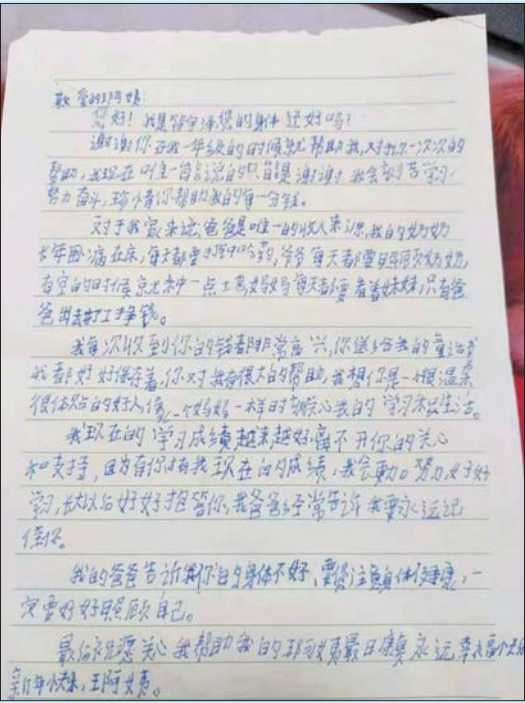 敬爱的邱阿姨:
您好!我是 您的身体还好吗?
谢谢你在我一年级的时候就帮助我,对我一次次的
帮助,我现在唯一能说的只能是谢谢!我会刻苦学习,
努力奋斗,珍惜你帮助我的每一分钱。
对于我家来说,爸爸是唯一的收入来源,我的奶奶
长年因病在床,每天都要 吃药,爷爷每天都要照顾奶奶,
有空的时候就去种一点土地,妈妈每天都要看着妹妹,只有爸
爸出去打工挣钱。
我每次收到你的钱都非常高兴,你送给我的童话书
我都好好保存着,你对我有很大的帮助,我想你是一很温柔
很体贴的好人,像一个妈妈一样时刻关心我的学习和生活。
我现在的学习成绩越来越好,离不开你的关心
和支持,因为有你才有我现在的成绩,我会 努力好好
学习,长大以后好好报答你,我爸爸经常告诉我要永远记
住你。
我的爸爸告诉我你的身体不好,要您注意身体健康,一
定要好好照顾自己。
最后祝愿关心我帮助我的邱阿姨 康永远幸
新年快乐,王阿姨。